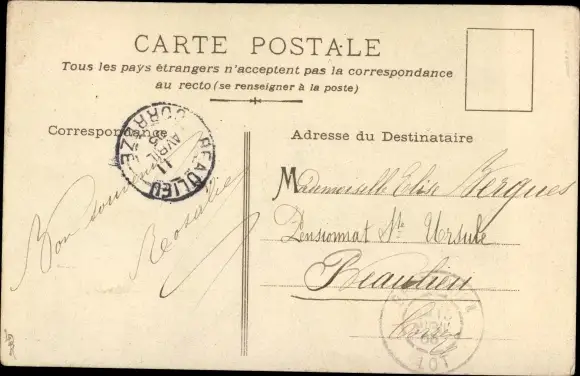 CARTE POSTALE
Tous les pays étrangers n'acceptent pas la correspondance
au recto (se renseigner à la poste)
Correspondance
Adresse du Destinataire
BEAULIEU
CORRÈZE
11
AVRIL
Bon souvenir
Rosalie
Mademoiselle Elise Bergues
Pensionnat Ste Ursule
Beaulieu
LOT